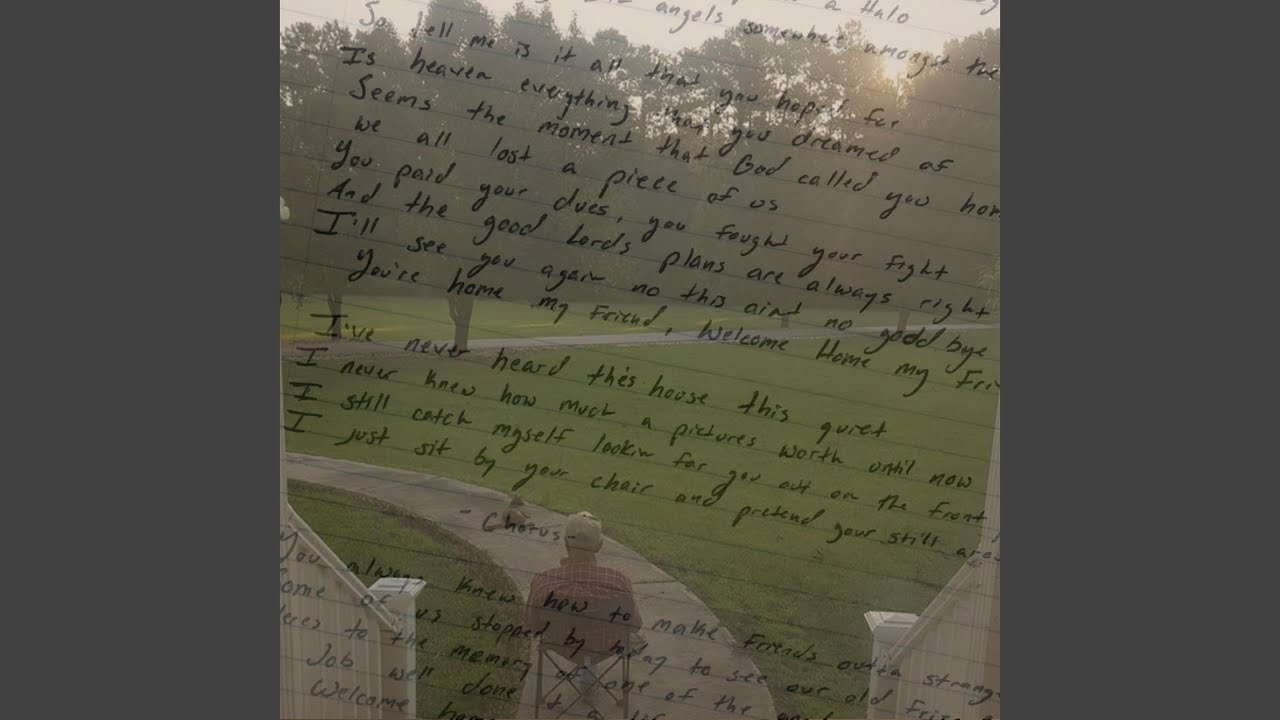 angels somewhere amongst the
a Halo
So tell me is it all that you hoped for
Is heaven everything that you dreamed of
Seems the moment that God called you hom
we all lost a piece of us
You paid your dues, you fought your fight
And the good Lords plans are always right
I'll see you again no this aint no goodbye
You're home my friend, Welcome Home my Fri
I've never heard this house this quiet
I never knew how much a pictures worth until now
I still catch myself lookin for you out on the front
I just sit by your chair and pretend your still arou
- Chorus -
You always knew how to make Friends outta strange
Some of us stopped by today to see our old Frien
Heres to the memory of one of the
Job well done
Welcome home